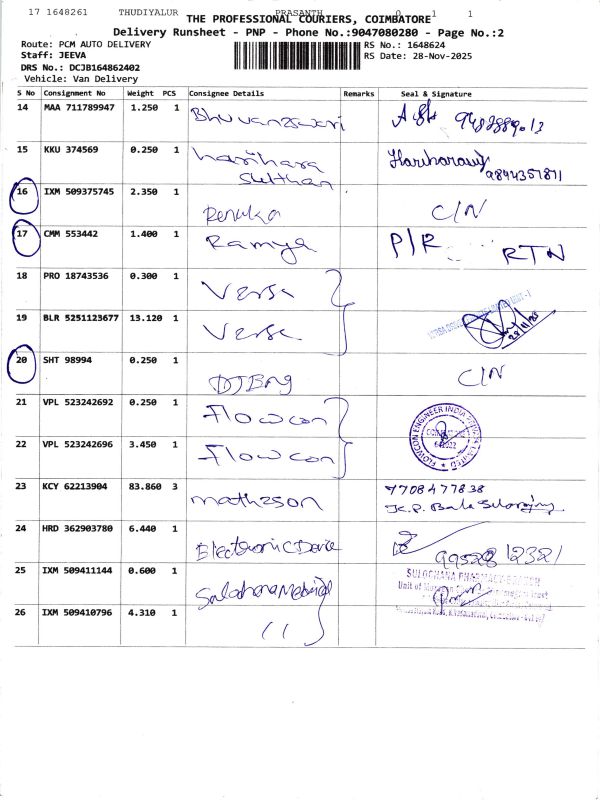 17 1648261 THUDIYALUR PRASANTH 0 1 1
THE PROFESSIONAL COURIERS, COIMBATORE
Delivery Runsheet - PNP - Phone No.:9047080280 - Page No.:2
Route: PCM AUTO DELIVERY RS No.: 1648624
Staff: JEEVA RS Date: 28-Nov-2025
DRS No.: DCJB164862402
Vehicle: Van Delivery
S No Consignment No Weight PCS Consignee Details Remarks Seal & Signature
14 MAA 711789947 1.250 1 Bhuvanzswari
15 KKU 374569 0.250 1 harihara Sutthan Hariharasuthan 9894357871
16 IXM 509375745 2.350 1 Renuka C/N
17 CMM 553442 1.400 1 Ramya P/R RTN
18 PRO 18743536 0.300 1 Versa
19 BLR 5251123677 13.120 1 Versa 28/11/25
20 SHT 98994 0.250 1 DTBng C/N
21 VPL 523242692 0.250 1 Flowcon
22 VPL 523242696 3.450 1 Flowcon FLOWCON ENGINEER INDIA PRIVATE LIMITED
23 KCY 62213904 83.860 3 mathzson 9708477838
24 HRD 362903780 6.440 1 Electronic Device
25 IXM 509411144 0.600 1 Sulochana Medical SULOCHANA PHARMACY
26 IXM 509410796 4.310 1 ( (